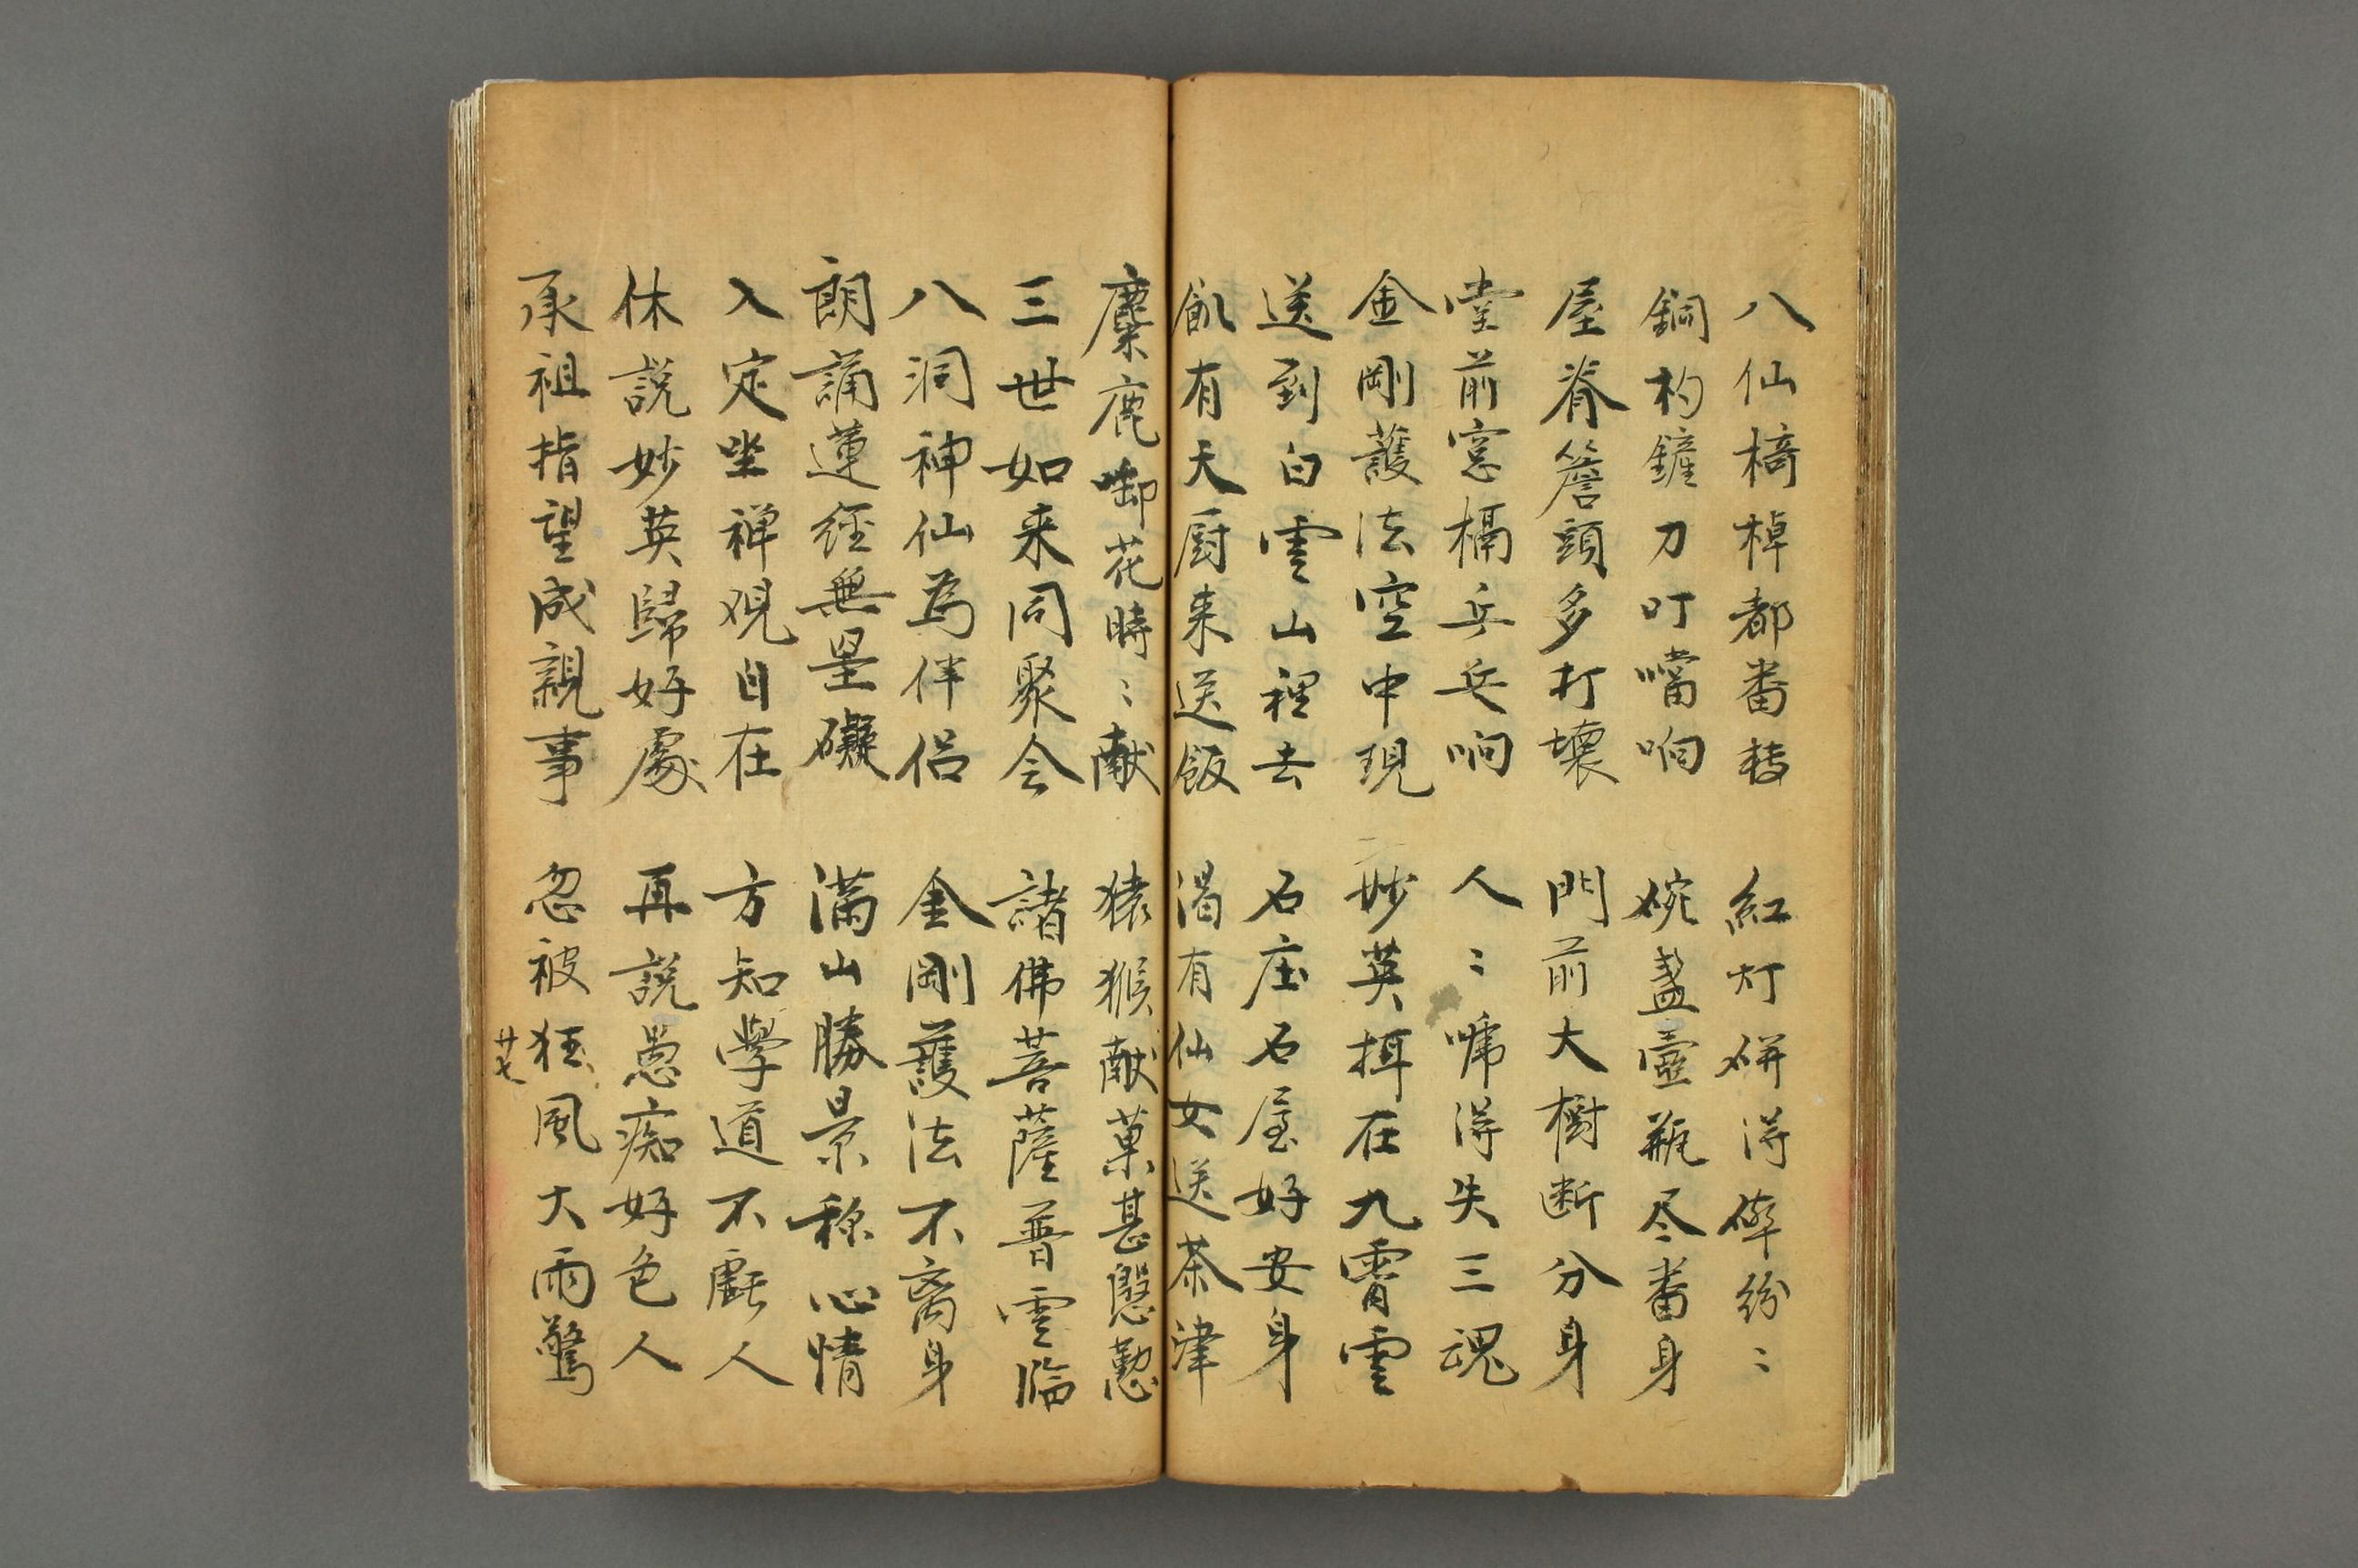 八仙椅棹都畨转 紅灯缾得碎纷〻
銅杓鏟刀叮噹响 碗盏壷瓶尽畨身
屋脊簷頭多打壞 門前大樹断分身
堂前窓槅乒乓响 人〻唬得失三魂
金剛護法空中現 妙英摂在九霄雲
送到白雲山裡去 石庄石屋好安身
飢有天厨来送飯 渴有仙女送茶津
麋鹿啣花時〻献 猿猴献菓甚慇懃
三世如来同聚会 諸佛菩薩普雲臨
八洞神仙為伴侣 金剛護法不离身
朗誦蓮經無罣礙 满山勝景称心情
入定坐禅观自在 方知學道不虧人
休説妙英歸好處 再説愚痴好色人
承祖指望成親事 忽被狂風大雨驚
廿七